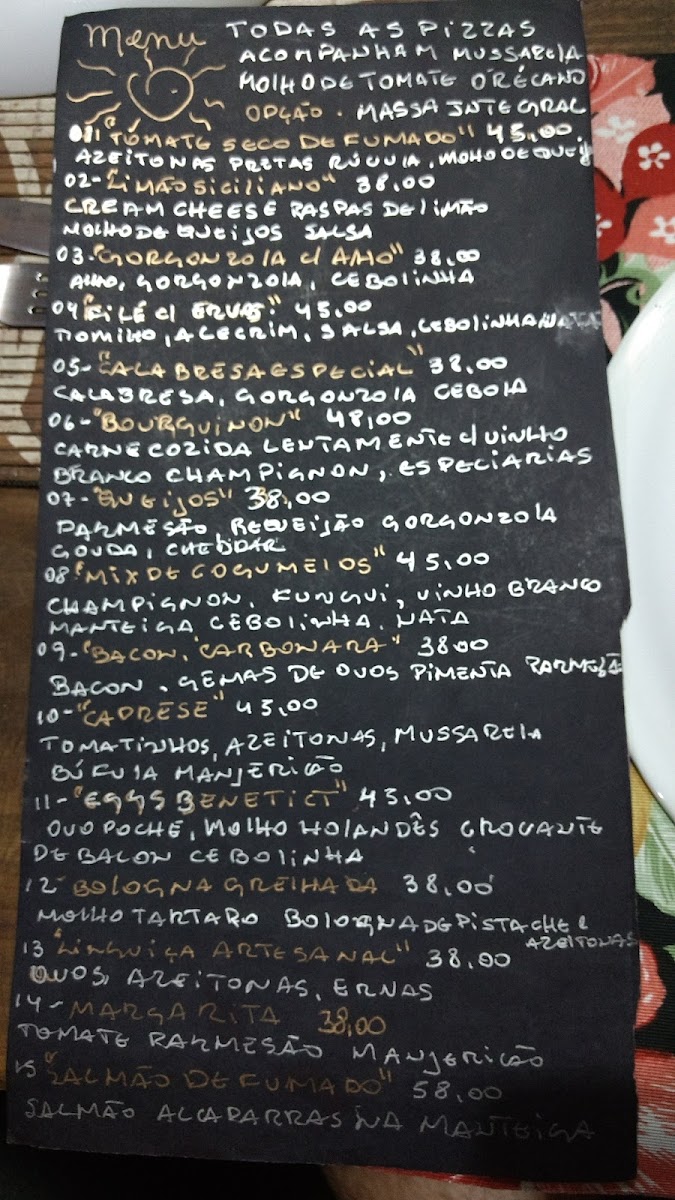 Menu
TODAS AS PIZZAS
ACOMPANHAM MUSSARELA
MOLHO DE TOMATE ORÉGANO
OPÇÃO . MASSA INTEGRAL
01 "TOMATE SECO DEFUMADO" 45,00
AZEITONAS PRETAS RÚCULA, MOLHO DE QUEIJ
02-"LIMÃO SICILIANO" 38,00
CREAM CHEESE RASPAS DE LIMÃO
MOLHO DE QUEIJOS SALSA
03-"GORGONZOLA C/ ALHO" 38,00
ALHO, GORGONZOLA, CEBOLINHA
04 "FILÉ C/ ERVAS" 45,00
ALECRIM, SALSA, CEBOLINHA NATA
05-"CALABRESA ESPECIAL" 38,00
CALABRESA, GORGONZOLA CEBOLA
06-"BOURGUINON" 48,00
CARNE COZIDA LENTAMENTE C/ VINHO
BRANCO CHAMPIGNON, ESPECIARIAS
07-"QUEIJOS" 38,00
PARMESÃO, REQUEIJÃO GORGONZOLA
GOUDA, CHEDDAR
08 "MIX DE COGUMELOS" 45,00
CHAMPIGNON, FUNGUI, VINHO BRANCO
MANTEIGA CEBOLINHA, NATA
09-"BACON, CARBONARA" 38,00
BACON, GEMAS DE OVOS PIMENTA PARMESÃ
10-"CAPRESE" 45,00
TOMATINHOS, AZEITONAS, MUSSARELA
BÚFULA MANJERICÃO
11-"EGGS BENETICT" 45,00
OVO POCHÉ, MOLHO HOLANDÊS CROCANTE
DE BACON CEBOLINHA
12 BOLOGNA GRELHADA 38,00
MOLHO TARTARO BOLOGNA DE PISTACHE &
AZEITONAS
13 "LINGUIÇA ARTESANAL" 38,00
OVOS, AZEITONAS, ERVAS
14-MARGARITA 38,00
TOMATE PARMESÃO MANJERICÃO
15 "SALMÃO DEFUMADO" 58,00
SALMÃO ALCAPARRAS NA MANTEIGA